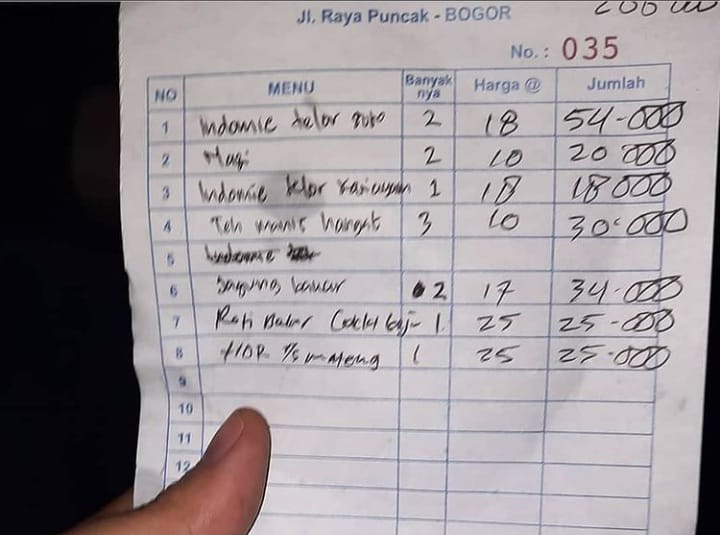 Jl. Raya Puncak - BOGOR
No. : 035
NO MENU Banyak nya Harga @ Jumlah
1 Indomie telor 2 18 54-000
2 Nasi 2 10 20 000
3 Indomie telor 1 18 18 000
4 Teh manis hangat 3 10 30.000
5 Indomie
6 Jagung bakar 2 17 34-000
7 Roti Bakar Coklat keju 1 25 25-000
8 1 25 25-000
9
10
11
12